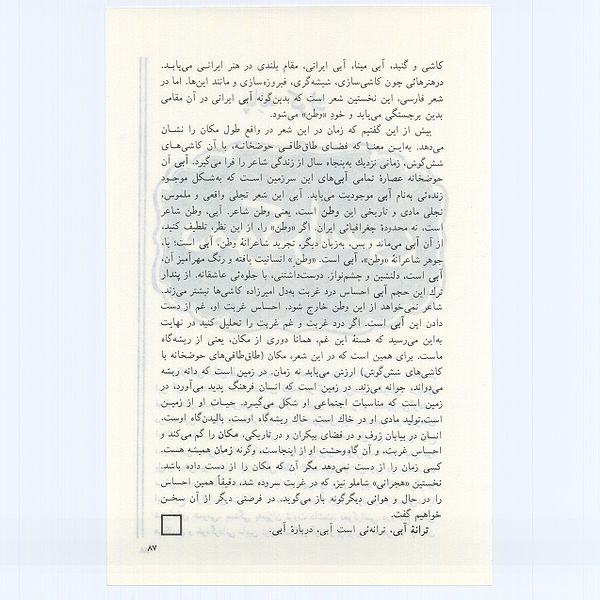 کاشی و گنبد، آبی مینا، آبی ایرانی، مقام بلندی در هنر ایرانی می‌یابد.
درهنرهائی چون کاشی‌سازی، شیشه‌گری، فیروزه‌سازی و مانند این‌ها. اما در
شعر فارسی، این نخستین شعر است که بدین‌گونه آبی ایرانی در آن مقامی
بدین برجستگی می‌یابد و خودِ «وطن» می‌شود.
پیش از این گفتیم که زمان در این شعر در واقع طول مکان را نشان
می‌دهد. به‌این معنا که فضای طاق‌طاقی حوضخانه، با آن کاشی‌های
شش‌گوش، زمانی نزدیك به‌پنجاه سال از زندگی شاعر را فرا می‌گیرد. آبی آن
حوضخانه عصارهٔ تمامی آبی‌های این سرزمین است که به‌شکل موجود
زنده‌ئی به‌نام آبی موجودیت می‌یابد. آبی این شعر تجلی واقعی و ملموس،
تجلی مادی و تاریخی این وطن است، یعنی وطن شاعر. آبی، وطن شاعر
است، نه محدودهٔ جغرافیائی ایران. اگر «وطن» را، از این نظر، تلطیف کنید،
از آن آبی می‌ماند و بس، به‌زبان دیگر، تجرید شاعرانهٔ وطن، آبی است؛ یا،
جوهر شاعرانهٔ «وطن»، آبی است. «وطن» انسانیت یافته و رنگ مهرآمیز آن،
آبی است، دلنشین و چشم‌نواز. دوست‌داشتنی، با جلوه‌ئی عاشقانه. از پندار
ترك این حجم آبی احساس درد غربت به‌دل امیرزاده کاشی‌ها نیشتر می‌زند.
شاعر نمی‌خواهد از این وطن خارج شود. احساس غربت او، غم از دست
دادن این آبی است. اگر درد غربت و غم غربت را تحلیل کنید در نهایت
به‌این می‌رسید که هستهٔ این غم، همانا دوری از مکان، یعنی از ریشه‌گاه
ماست. برای همین است که در این شعر، مکان (طاق‌طاقی‌های حوضخانه با
کاشی‌های شش‌گوش) ارزش می‌یابد نه زمان. در زمین است که دانه ریشه
می‌دواند، جوانه می‌زند. در زمین است که انسان فرهنگ پدید می‌آورد، در
زمین است که مناسبات اجتماعی او شکل می‌گیرد. حیات او از زمین
است،تولید مادی او در خاك است. خاك ریشه‌گاه اوست، بالیدن‌گاه اوست.
انسان در بیابان ژرف و در فضای بیکران و در تاریکی، مکان را گم می‌کند و
احساس غربت، و آن گاه‌وحشت او از اینجاست، وگرنه زمان همیشه هست.
کسی زمان را از دست نمی‌دهد مگر آن که مکان را از دست داده باشد.
نخستین «هجرانی» شاملو نیز، که در غربت سروده شد، دقیقاً همین احساس
را در حال و هوائی دیگرگونه باز می‌گوید. در فرصتی دیگر از آن سخن
خواهیم گفت.
ترانهٔ آبی، ترانه‌ئی است آبی، دربارهٔ آبی.
۸۷